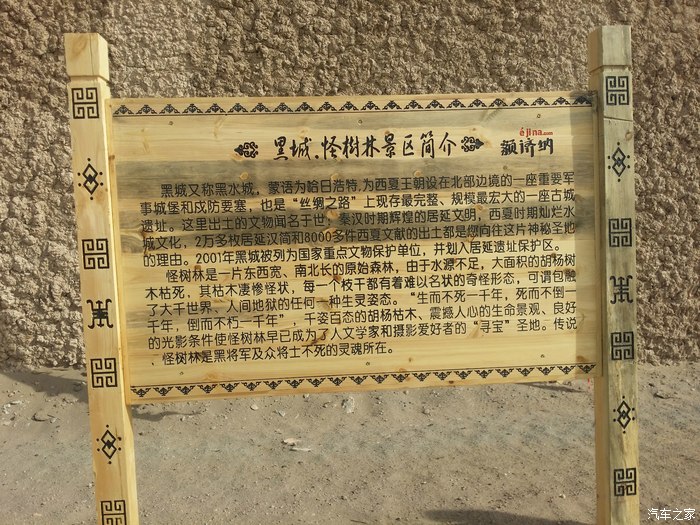 黑城.怪樹林景区简介
éjina.com
额济纳
黑城又称黑水城，蒙语为哈日浩特,为西夏王朝设在北部边境的一座重要军
事城堡和戍防要塞，也是“丝绸之路”上现存最完整、规模最宏大的一座古城
遗址。这里出土的文物闻名于世，秦汉时期辉煌的居延文明，西夏时期灿烂水
城文化，2万多枚居延汉简和8000多件西夏文献的出土都是您向往这片神秘圣地
的理由。2001年黑城被列为国家重点文物保护单位，并划入居延遗址保护区。
怪树林是一片东西宽、南北长的原始森林，由于水源不足，大面积的胡杨树
木枯死，其枯木凄惨怪状，每一个枝干都有着难以名状的奇怪形态，可谓包融
了大千世界、人间地狱的任何一种生灵姿态。“生而不死一千年，死而不倒一
千年，倒而不朽一千年”，千姿百态的胡杨枯木、震撼人心的生命景观、良好
的光影条件使怪树林早已成为了人文学家和摄影爱好者的“寻宝”圣地。传说
、怪树林是黑将军及众将士不死的灵魂所在。
汽车之家